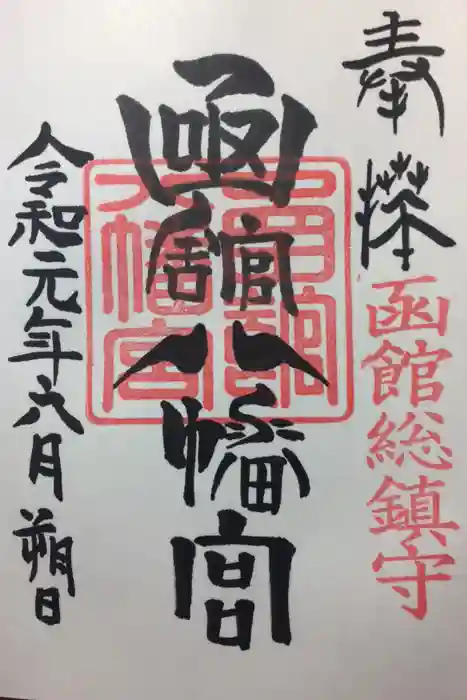 奉拝
函館総鎮守
函館八幡宮
函館八幡宮
令和元年六月朔日